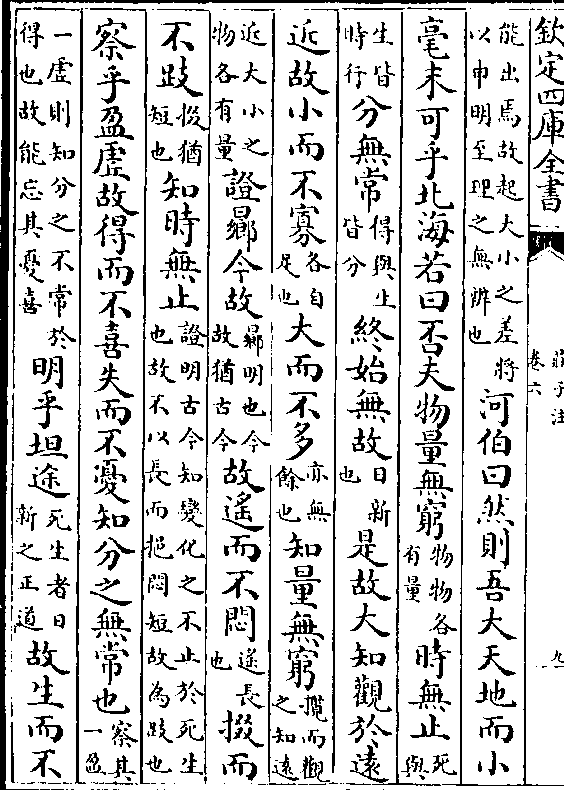 欽定四庫全書 莊子注 卷六 九
能出焉故起大小之差將以申明至理之無辨也河伯曰然則吾大天地而小
毫末可乎北海若曰否夫物量無窮物物各有量時無止死與
生皆時行分無常得與生皆分終始無故日新也是故大知觀於遠
近故小而不寡各自足也大而不多亦無餘也知量無窮攬而觀之知遠
近大小之物各有量證曏今故曏明也今故猶古今故遙而不悶遙長也掇而
不跂掇猶短也知時無止證明古今知變化之不止於死生也故不以長而悒悶短故為跂也
察乎盈虛故得而不喜失而不憂知分之無常也察其一盈
一虛則知分之不常於得也故能忘其憂喜明乎坦途死生者日新之正道故生而不